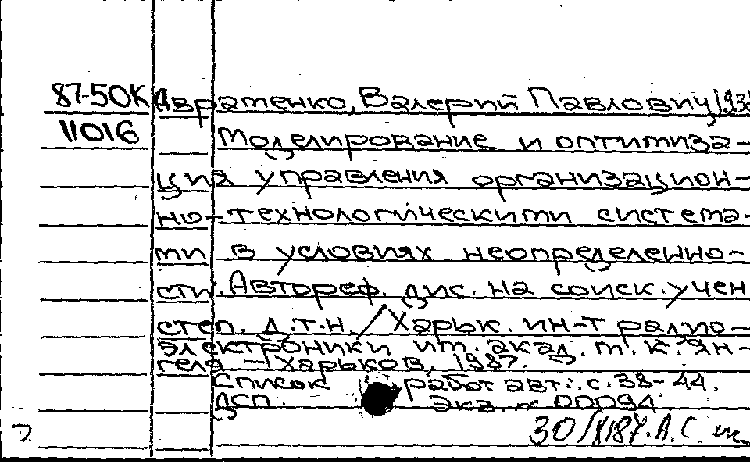 87-50К Авраменко, Валерий Павлович, 193
11016 Моделирование и оптимиза-
ция управления организацион-
но-технологическими система-
ми в условиях неопределенно-
сти. Автореф. дис. на соиск. учен
степ. д.т.н. / Харьк. ин-т радио-
электроники им. акад. М. К. Ян-
геля. — Харьков, 1987.
Список работ авт.: с. 38-44.
ДСП. Экз. № 00094.
30/X187. А.С